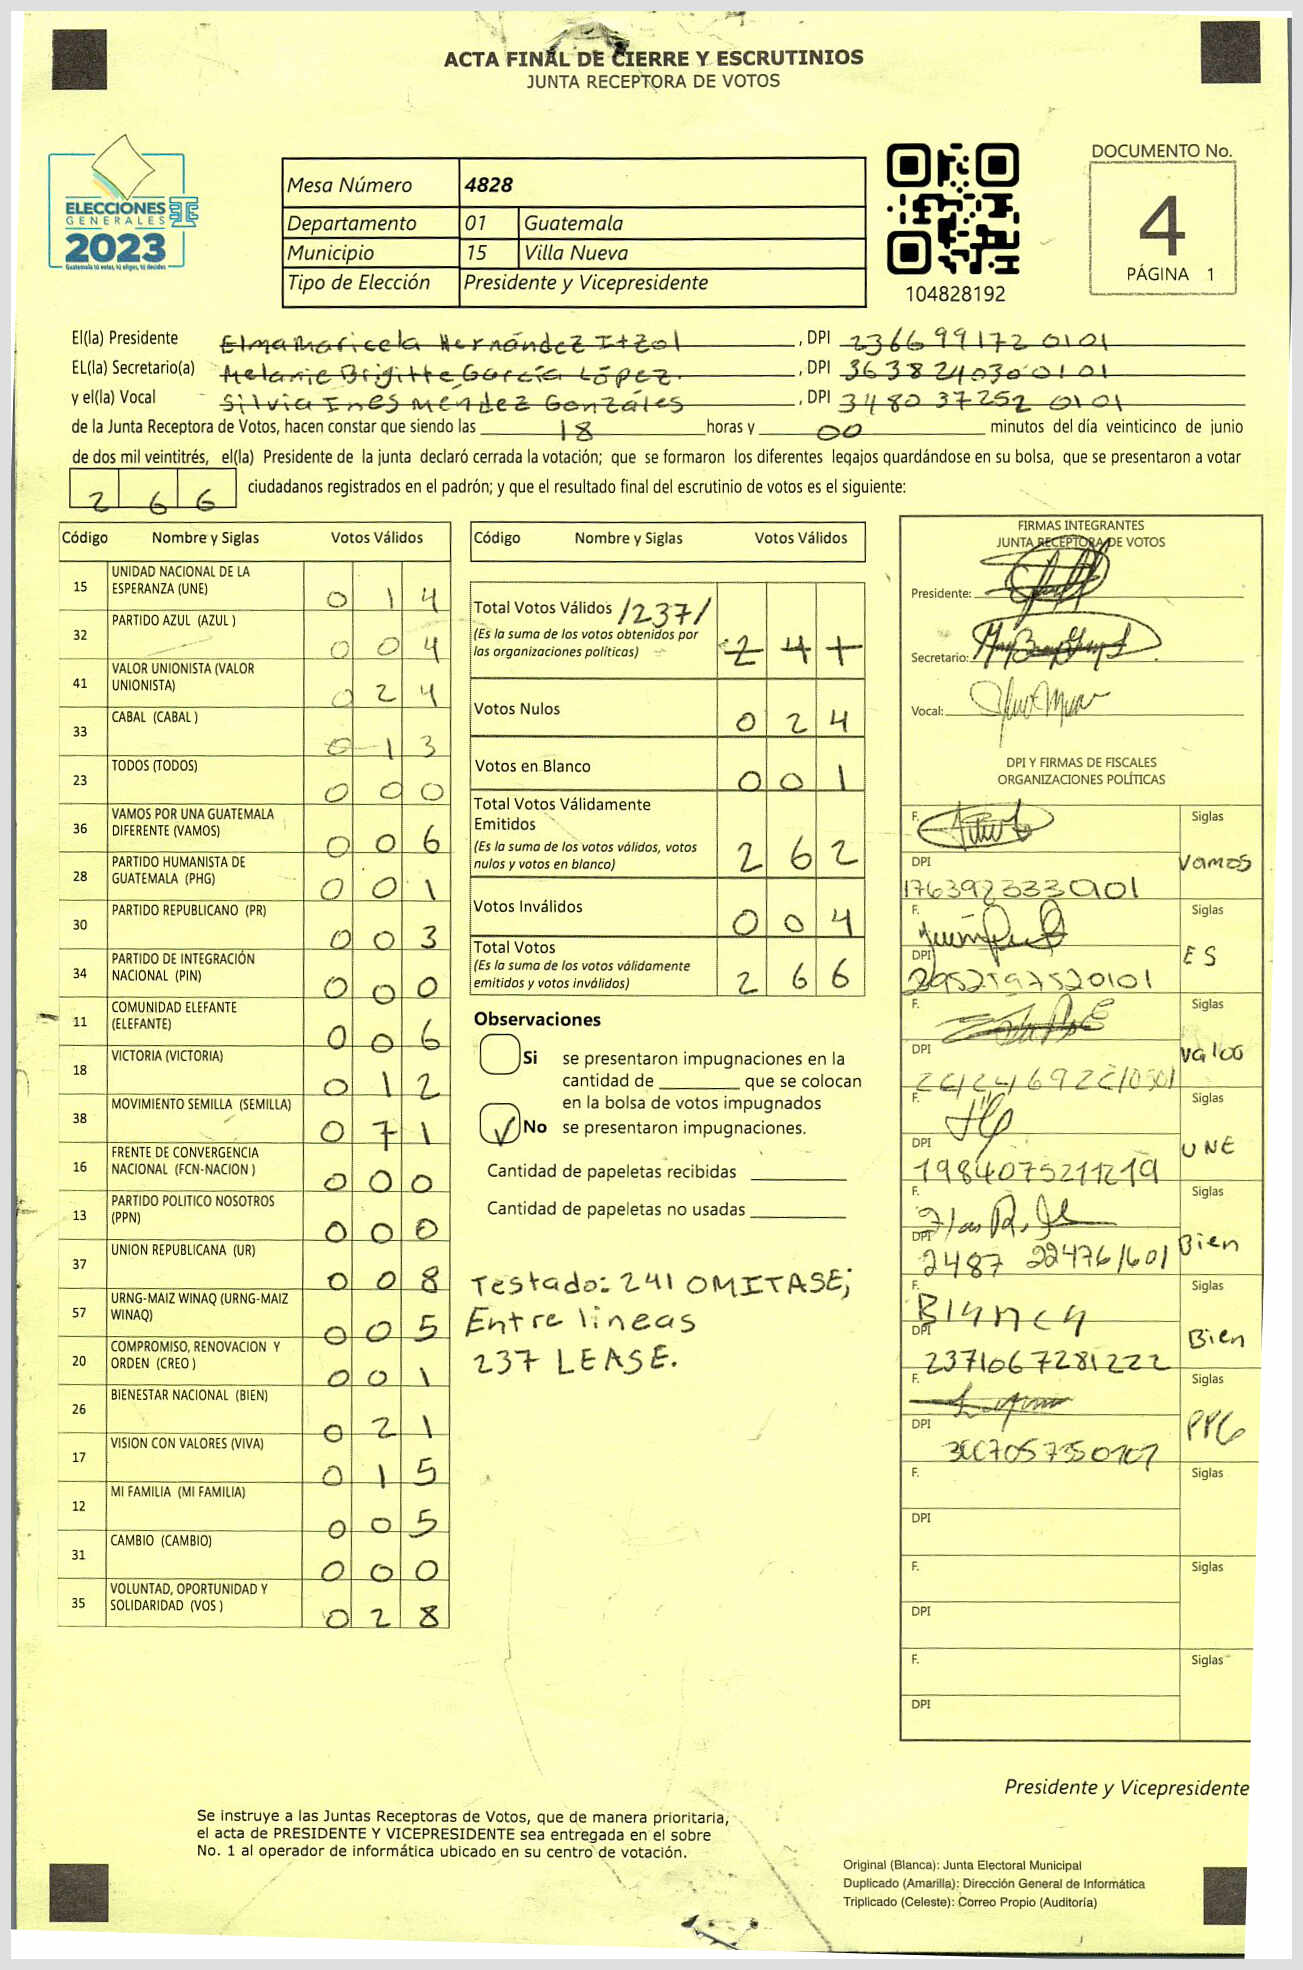 ACTA FINAL DE CIERRE Y ESCRUTINIOS
JUNTA RECEPTORA DE VOTOS
ELECCIONES
GENERALES
2023
Guatemala tú votas, tú eliges, tú decides
Mesa Número 4828
Departamento 01 Guatemala
Municipio 15 Villa Nueva
Tipo de Elección Presidente y Vicepresidente
104828192
DOCUMENTO No.
4
PÁGINA 1
El(la) Presidente Elma Maricela Hernández Itzol, DPI 2366991720101
EL(la) Secretario(a) Melanie Brigitte García López, DPI 3638240300101
y el(la) Vocal Silvia Ines Méndez Gonzáles, DPI 3480372520101
de la Junta Receptora de Votos, hacen constar que siendo las 18 horas y 00 minutos del día veinticinco de junio
de dos mil veintitrés, el(la) Presidente de la junta declaró cerrada la votación; que se formaron los diferentes legajos guardándose en su bolsa, que se presentaron a votar
266 ciudadanos registrados en el padrón; y que el resultado final del escrutinio de votos es el siguiente:
Código Nombre y Siglas Votos Válidos
15 UNIDAD NACIONAL DE LA ESPERANZA (UNE) 014
32 PARTIDO AZUL (AZUL ) 004
41 VALOR UNIONISTA (VALOR UNIONISTA) 024
33 CABAL (CABAL ) 013
23 TODOS (TODOS) 000
36 VAMOS POR UNA GUATEMALA DIFERENTE (VAMOS) 006
28 PARTIDO HUMANISTA DE GUATEMALA (PHG) 001
30 PARTIDO REPUBLICANO (PR) 003
34 PARTIDO DE INTEGRACIÓN NACIONAL (PIN) 000
11 COMUNIDAD ELEFANTE (ELEFANTE) 006
18 VICTORIA (VICTORIA) 012
38 MOVIMIENTO SEMILLA (SEMILLA) 071
16 FRENTE DE CONVERGENCIA NACIONAL (FCN-NACION ) 000
13 PARTIDO POLITICO NOSOTROS (PPN) 000
37 UNION REPUBLICANA (UR) 008
57 URNG-MAIZ WINAQ (URNG-MAIZ WINAQ) 005
20 COMPROMISO, RENOVACION Y ORDEN (CREO ) 001
26 BIENESTAR NACIONAL (BIEN) 021
17 VISION CON VALORES (VIVA) 015
12 MI FAMILIA (MI FAMILIA) 005
31 CAMBIO (CAMBIO) 000
35 VOLUNTAD, OPORTUNIDAD Y SOLIDARIDAD (VOS ) 028
Código Nombre y Siglas Votos Válidos
Total Votos Válidos /237/ 241
(Es la suma de los votos obtenidos por
las organizaciones políticas)
Votos Nulos 024
Votos en Blanco 001
Total Votos Válidamente
Emitidos
(Es la suma de los votos válidos, votos
nulos y votos en blanco) 262
Votos Inválidos 004
Total Votos
(Es la suma de los votos válidamente
emitidos y votos inválidos) 266
Observaciones
Si se presentaron impugnaciones en la
cantidad de ________ que se colocan
en la bolsa de votos impugnados
✓ No se presentaron impugnaciones.
Cantidad de papeletas recibidas
Cantidad de papeletas no usadas
Testado: 241 OMITASE;
Entre lineas
237 LEASE.
FIRMAS INTEGRANTES
JUNTA RECEPTORA DE VOTOS
Presidente:
Secretario:
Vocal:
DPI Y FIRMAS DE FISCALES
ORGANIZACIONES POLÍTICAS
F. Siglas
DPI Vamos
F. Siglas
DPI ES
2952597520101
F. Siglas
DPI Valor
F. Siglas
DPI UNE
1984075211219
F. Siglas
DPI Bien
2487 224761601
F. Siglas
Blanca
DPI Bien
2371067281222
F. Siglas
DPI PPG
F. Siglas
DPI
F. Siglas
DPI
F. Siglas
DPI
Presidente y Vicepresidente
Se instruye a las Juntas Receptoras de Votos, que de manera prioritaria,
el acta de PRESIDENTE Y VICEPRESIDENTE sea entregada en el sobre
No. 1 al operador de informática ubicado en su centro de votación.
Original (Blanca): Junta Electoral Municipal
Duplicado (Amarilla): Dirección General de Informática
Triplicado (Celeste): Correo Propio (Auditoría)